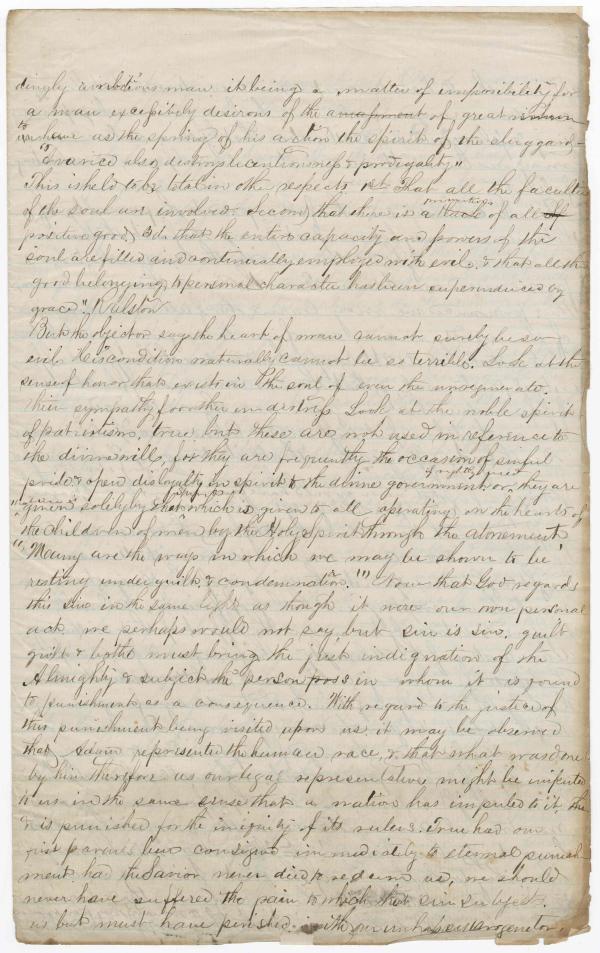 dingly ambitious man it being a matter of impossibility for
a man excessively desirous of the of great
to have as the spring of his action the spirit of the sluggard-
"Avarice also destroys licentiousness & prodigality"
This is held to be total in other respects 1st That all the faculties
of the soul are involved. Second, that there is a privation of all
positive good, 3d. that the entire capacity and powers of the
soul are filled and continually employed with evil, & that all the
good belonging to personal character has been superinduced by
grace". Ralston
But the objector say the heart of man cannot surely be so
evil. His condition naturally cannot be so terrible. Look at the
sense of honor that exists in the soul of even the unregenerate,
Their sympathy for other in distress Look at the noble spirit
of patriotism, true, but these are not used in reference to
the divine will, for they are frequently the occasion of sinful
pride & open disloyalty in spirit to the divine government or they are
given solely by that which is given to all operating on the hearts of
the children of men by the Holy Spirit through the atonement
"Many are the ways in which we may be shown to be
resting under guilt & condemnation." Now that God regards
this sin in the same light as though it were our own personal
act we perhaps would not say but sin is sin, guilt
guilt & both must bring the just indignation of the
Almighty & subject the person in whom it is found
to punishment as a consequence. With regard to the justice of
this punishment being visited upon us it may be observed
that Adam represented the human race, & that what was done
by him therefore as our legal representative might be imputed
to us in the same sense that a nation has imputed to it, the
& is punished for the iniquity of its rulers. True had our
first parents been consigned immediately to eternal punish-
ment had the Savior never died to redeem us, we should
never have suffered the pain to which that sin subject
us but must have perished with our unhappy progenitor,